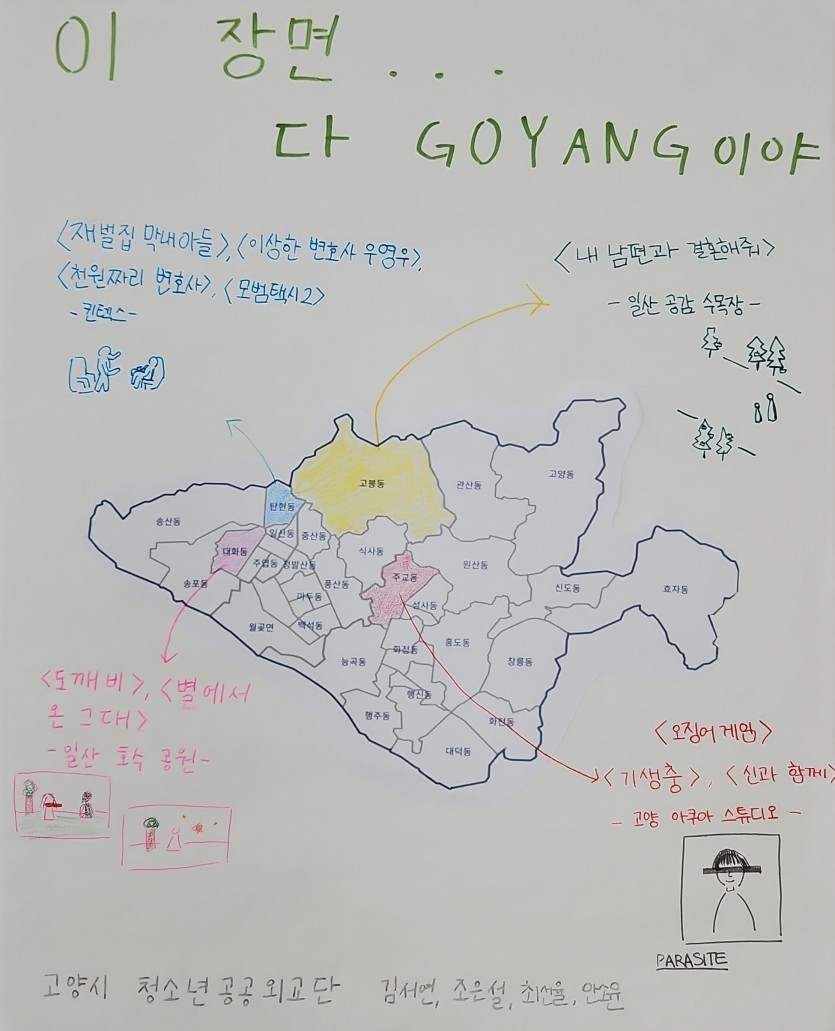 이 장면 . . .
다 GOYANG이야
<재벌집 막내아들>, <이상한 변호사 우영우>,
<천원짜리 변호사>, <모범택시2>
- 킨텍스 -
<내 남편과 결혼해줘>
- 일산 공감 수목장 -
고봉동
관산동
고양동
탄현동
송산동
일산동
중산동
식사동
대화동
주엽동
정발산동
풍산동
주교동
원산동
신도동
효자동
송포동
마두동
성사동
월곶면
백석동
능곡동
화정동
흥도동
창릉동
행신동
행주동
화전동
대덕동
<도깨비>, <별에서
온 그대>
- 일산 호수 공원 -
<오징어 게임>
<기생충>, <신과 함께>
- 고양 아쿠아 스튜디오 -
PARASITE
고양시 청소년공공외교단 김서연, 조은설, 최선율, 안소윤